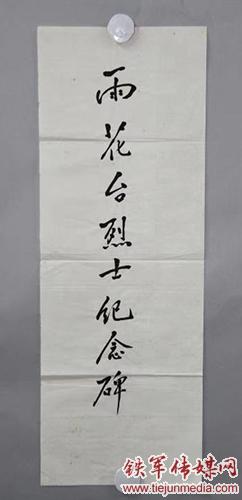 雨花台烈士纪念碑
铁军传媒网
www.tiejunmedia.com